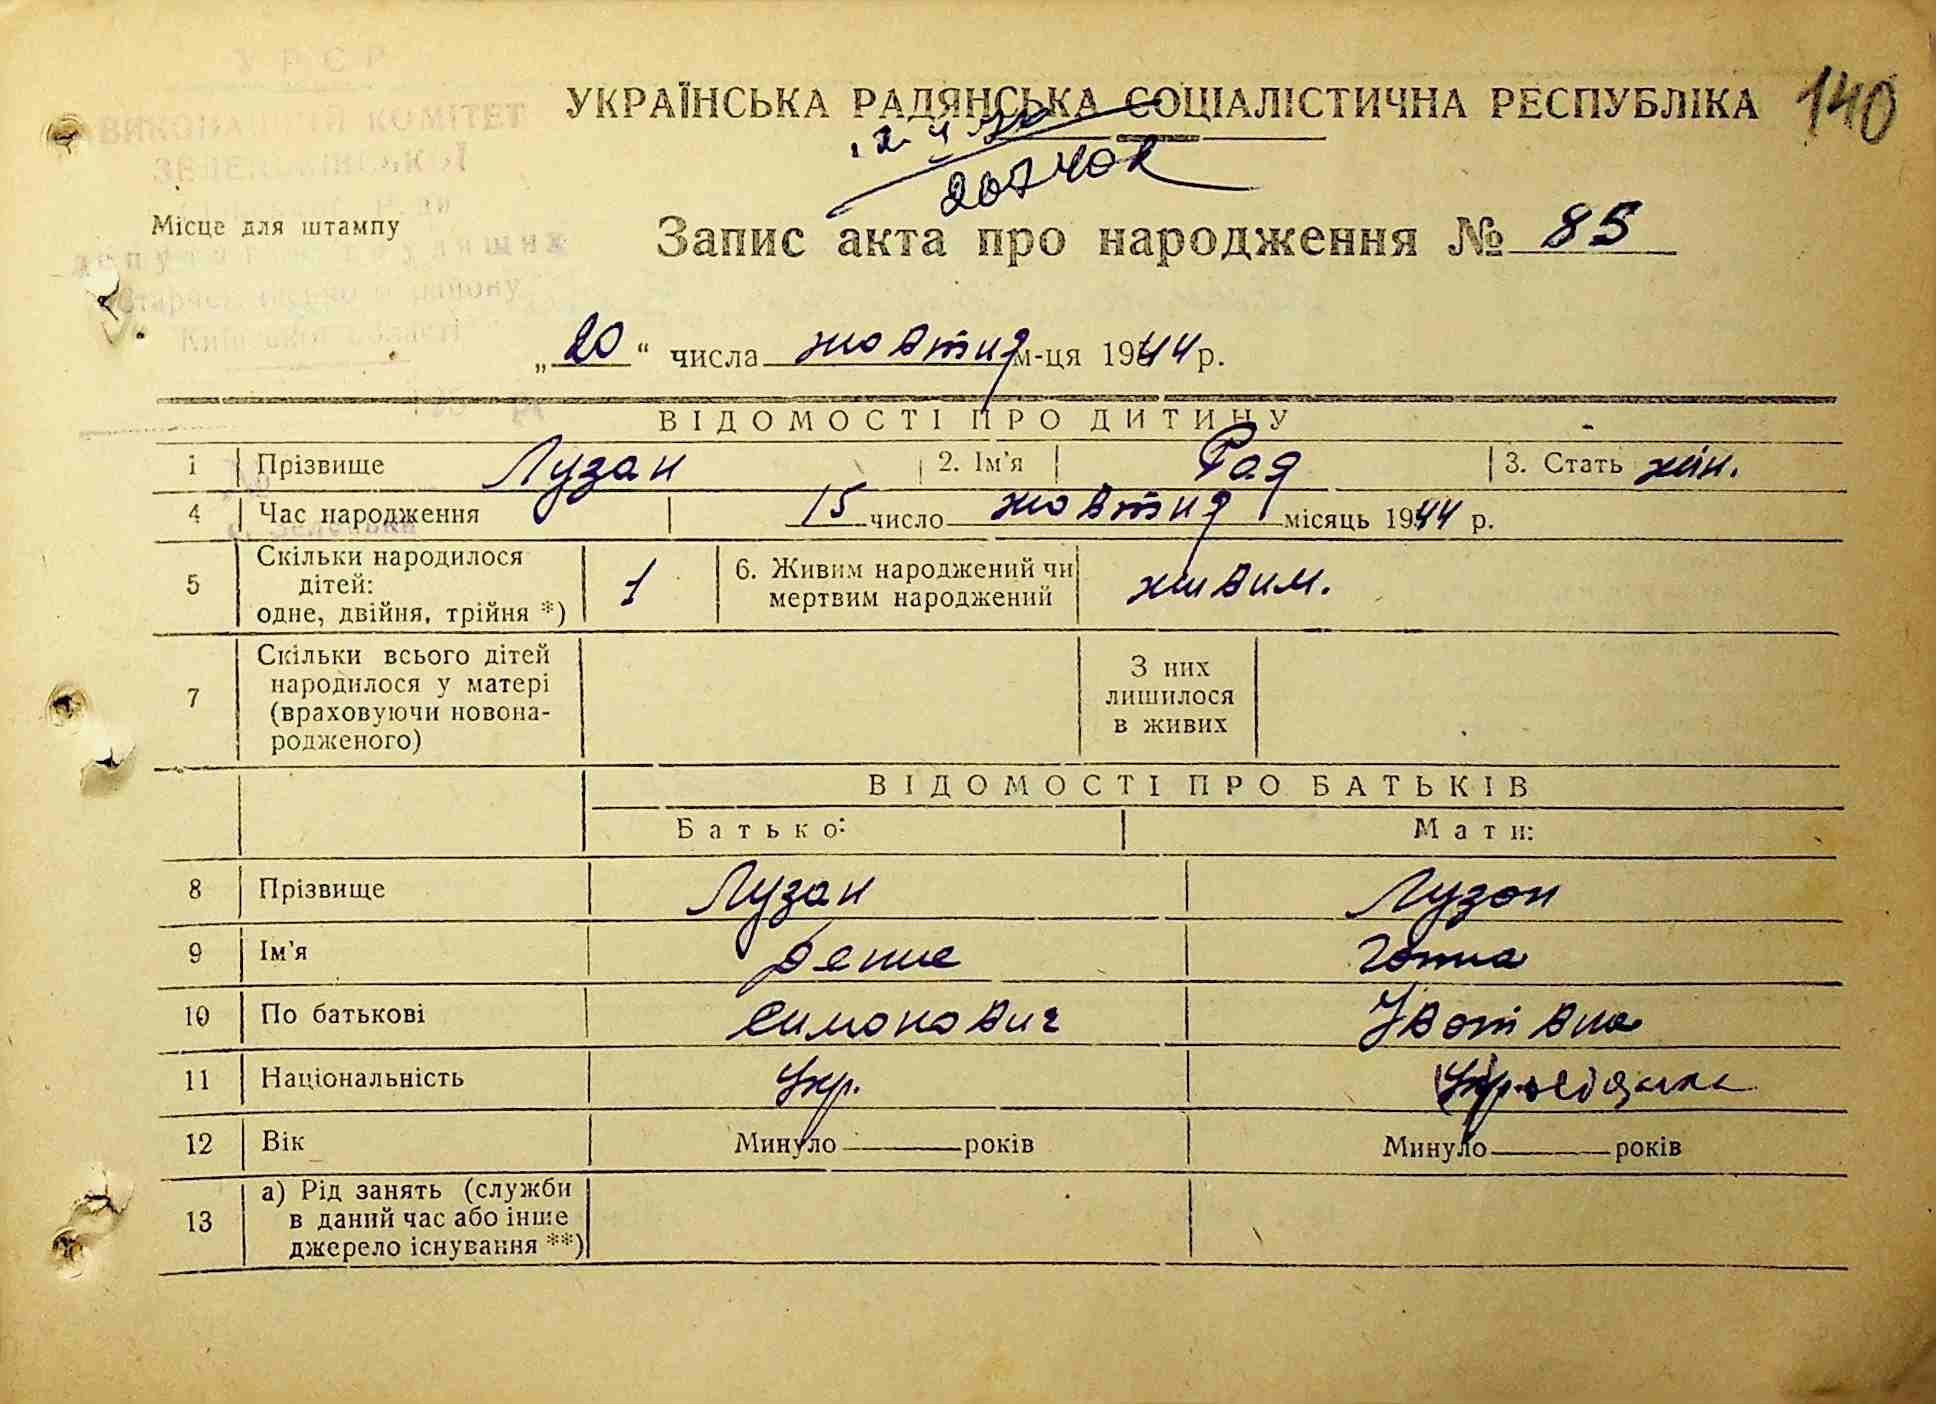 УРСР
ВИКОНАВЧИЙ КОМІТЕТ
140
УКРАЇНСЬКА РАДЯНСЬКА СОЦІАЛІСТИЧНА РЕСПУБЛІКА
Місце для штампу
Запис акта про народження № 85
Київської області
„20“ числа жовтня м-ця 1944 р.
ВІДОМОСТІ ПРО ДИТИНУ
1 Прізвище Лузан 2. Ім'я Рая 3. Стать жін.
4 Час народження 15 число жовтня місяць 1944 р.
5 Скільки народилося дітей: одне, двійня, трійня *) 1 6. Живим народжений чи мертвим народжений живим.
7 Скільки всього дітей народилося у матері (враховуючи новонародженого) З них лишилося в живих
ВІДОМОСТІ ПРО БАТЬКІВ
Батько: Мати:
8 Прізвище Лузан Лузан
9 Ім'я Ганна
10 По батькові Симонович
11 Національність Укр.
12 Вік Минуло років Минуло років
13 а) Рід занять (служби в даний час або інше джерело існування **)